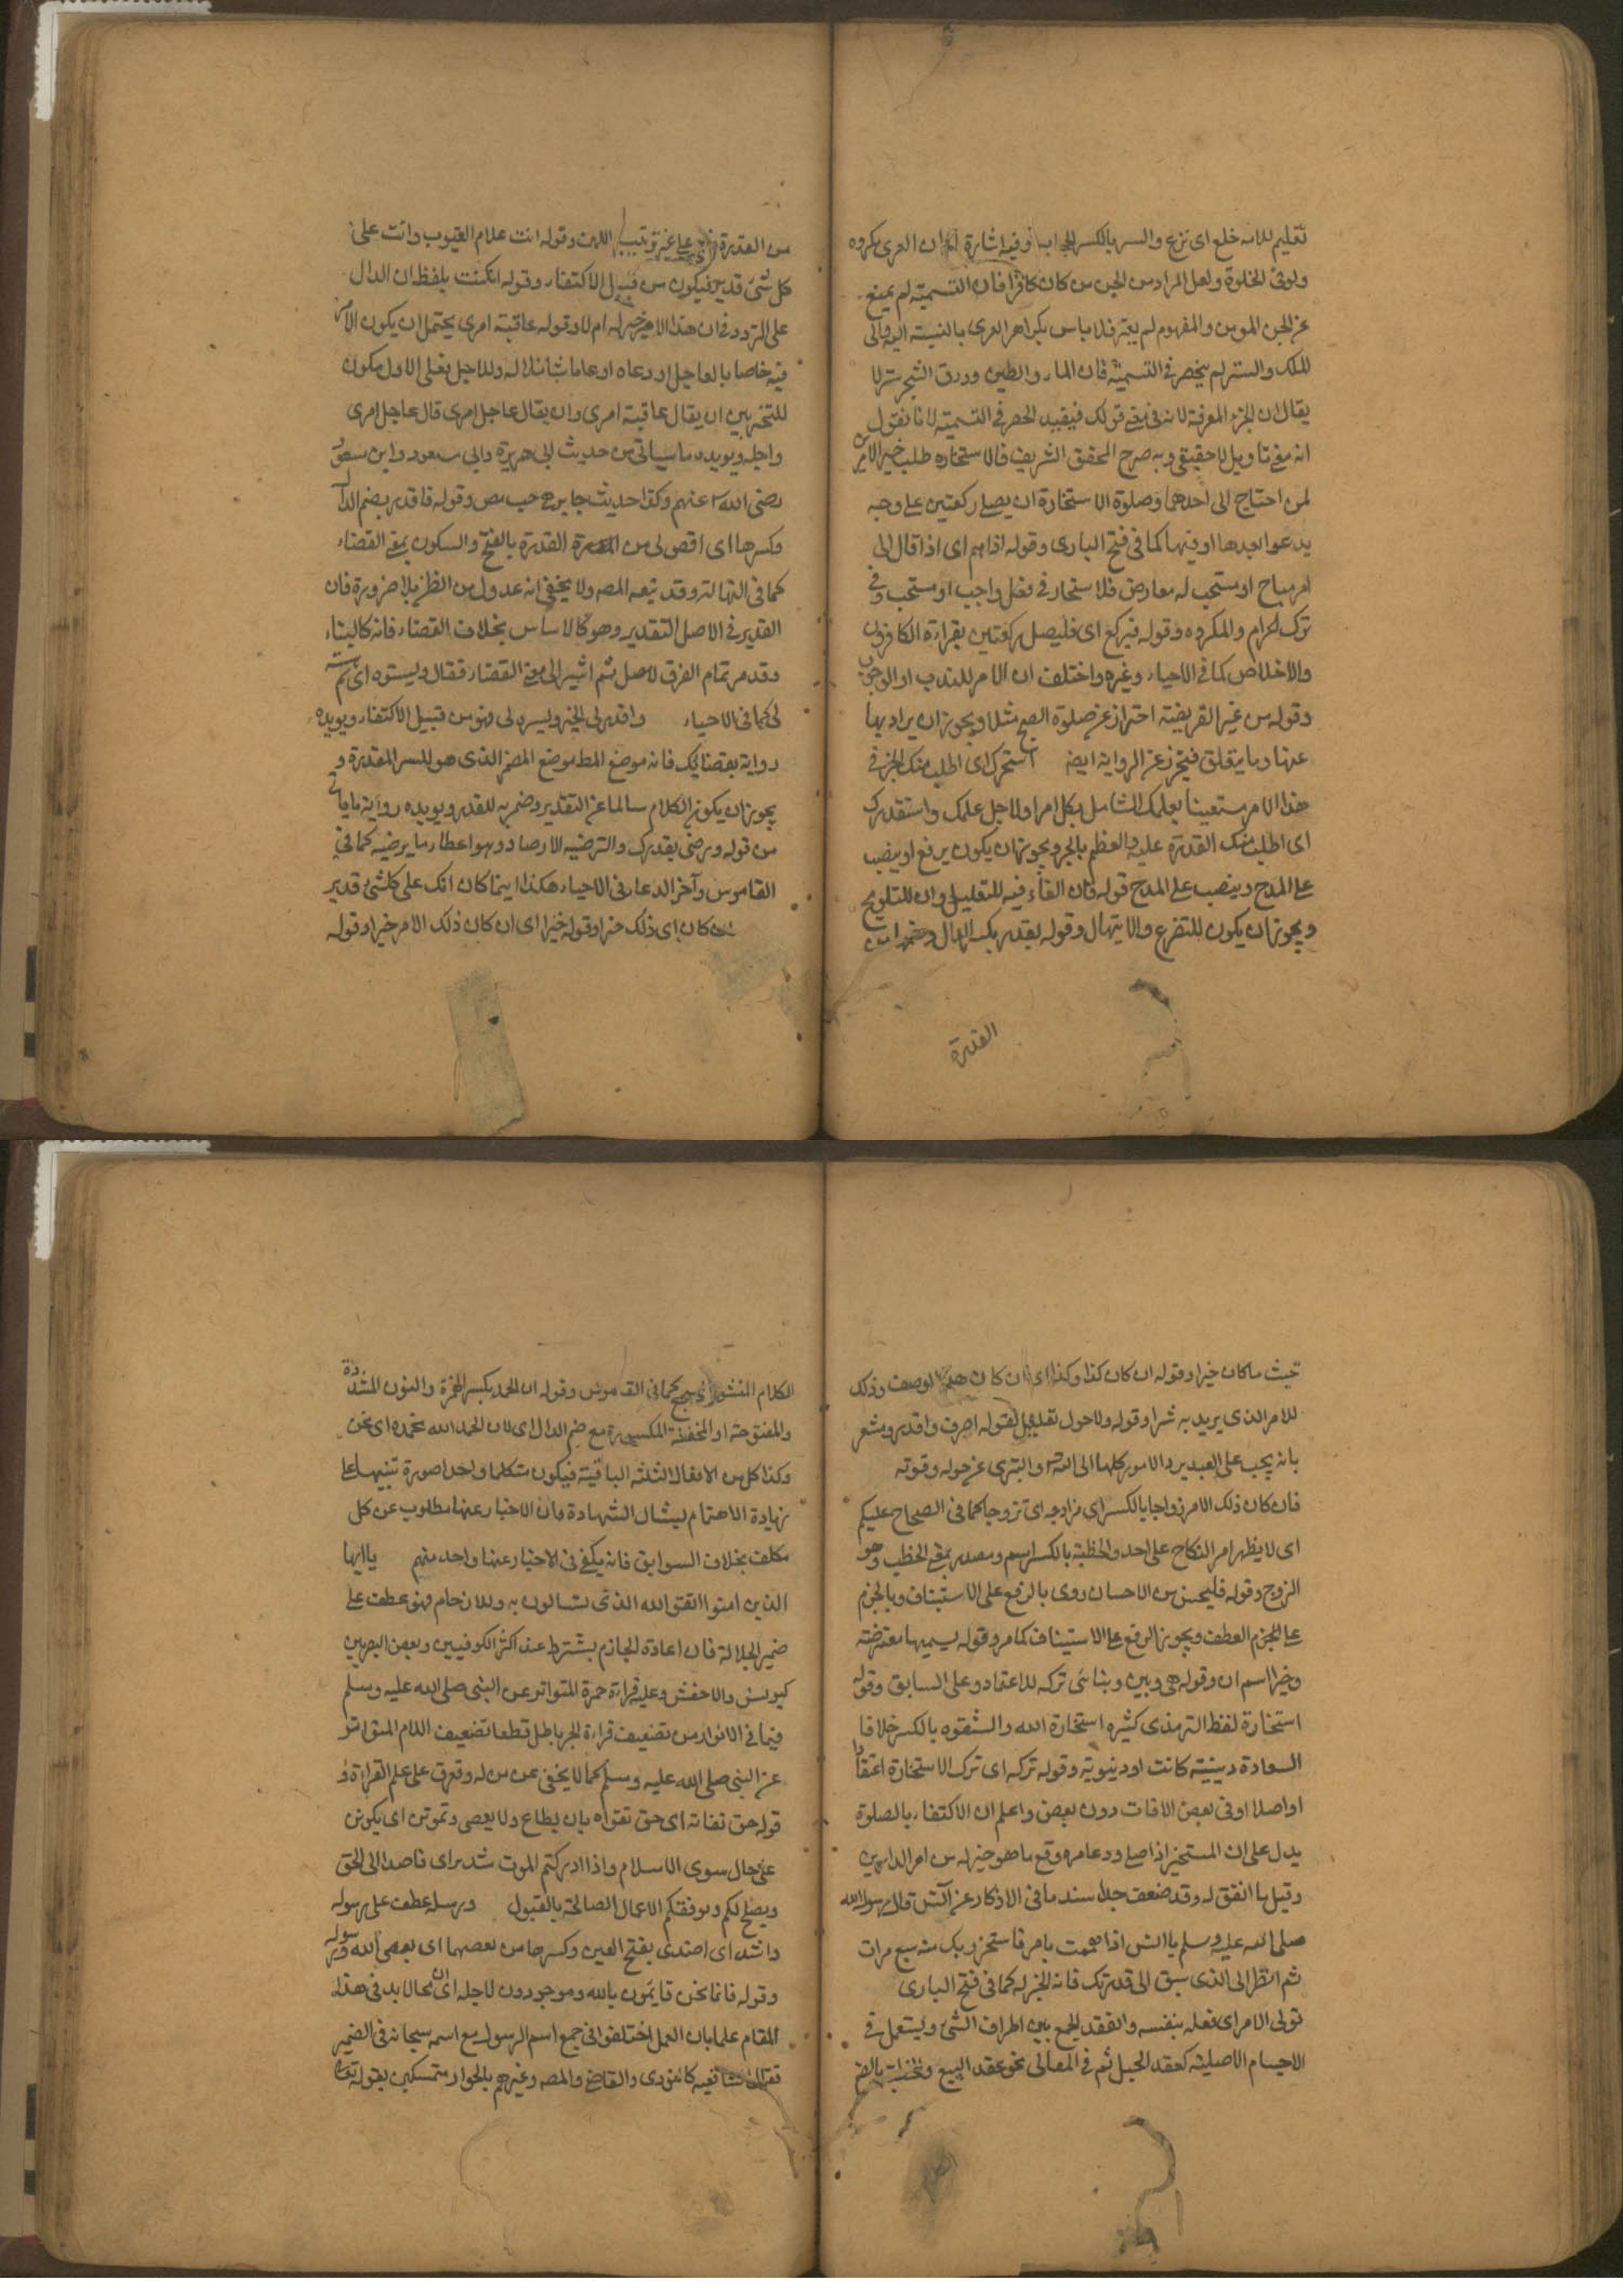 تعليم للامة خلع اى نزع والستر بالكسر الحجاب وفيه اشارة ان العرى مكروه
ولو فى الخلوة ولعل المراد من الجن من كان كافرا فان التسمية لم يمنع
عن الجن المومن والمفهوم لم يعتبر فلا باس بكراهر العرى بالنسبة اليه والى
الملك والستر لم ينحصر فى التسمية فان الماء والطين وورق الشجر ستر لا
يقال ان الجزء المعرفة لانه فى قولك فيفيد الحصر فى التسمية لانا نقول
انه تاويل لا حقيقى وبه صرح المحقق الشريف فالاستخارة طلب خير الامرين
لمن احتاج الى احدهما وصلوة الاستخارة ان يصلى ركعتين على وجه
يدعوا بعدها او فيها كما فى فتح البارى وقوله اذا هم اى اذا قال الى
امر مباح او مستحب له معارض فلا ستخار فى فعل واجب او مستحب وفى
ترك الحرام والمكروه وقوله فيركع اى فليصل ركعتين بقراءة الكافرون
والاخلاص كما فى الاحياء وغيره واختلف ان الامر للندب او الوجوب
وقوله من غير الفريضة احتراز عن صلوة الصبح مثلا ويجوز ان يراد بها
عنها وما يتعلق فيتجز عن الرواية ايضه استخيرك اى اطلب منك الخير فى
هذا الامر مستعينا بعلمك الشامل بكل امر او لاجل علمك واستقدرك
اى اطلب منك القدرة عليه والعظيم بالجر ويجوز ان يكون يرفع او ينصب
على المدح وينصب على المدح قوله فان الفاء فيه للتعليل وان للتلويح
ويجوز ان يكون للتضرع والابتهال وقوله بقدر بكسر الدال وضمها من
القدرة
من القدرة على غير ترتيب اللف وقوله انت علام الغيوب وانت على
كل شئ قدير فيكون من قبيل الاكتفاء وقوله ان كنت بلفظ ان الدال
على التردد فى ان هذا الامر خير له ام لا وقوله عاقبة امرى يحتمل ان يكون الامر
فيه خاصا بالعاجل او دعاه او عاما شاملا له وللاجل فعلى الاول يكون
للتخيير بين ان يقال عاقبة امرى وان يقال عاجل امرى قال عاجل امرى
واجله ويويده ما سياتى من حديث ابى هريرة وابى سعود وابن مسعود
رضى الله عنهم وكذا حديث جابر حب مص وقوله فاقدر بضم الدال
وكسرها اى اقص لى من القدرة بالفتح والسكون بمعنى القضاء
كما فى النهاية وقد تبعه المصه ولا يخفى انه عدول من الظاهر بلا ضرورة فان
القدير فى الاصل التقدير وهو كالاساس بخلاف القضاء فانه كالبناء
وقد مر تمام الفرق للاصل ثم اشير الى معنى القضاء فقال ويستره اى
لى كما فى الاحياء واقدر لى الخير ويسره لى فهو من قبيل الاكتفاء ويويده
رواية بقضائك فانه موضع المط موضع المضمر الذى هو للسر المقدرة و
يجوز ان يكون الكلام سالما عن التقدير وضميره للقدر ويويده رواية ما ياتى
من قوله ورضنى بقدرك والترضيه الارضاء وهو اعطاء ما يرضيه كما فى
القاموس وآخر الدعاء فى الاحياء هكذا اينما كان انك على كل شئ قدير
كان اى ذلك خيرا وقوله خيرا اى ان كان ذلك الامر خيرا وقوله
حيث ما كان خيرا وقوله ان كان كذا وكذا اى ان كان هذا الوصف وذلك
للامر الذى يريد به شرا وقوله ولا حول تعليل لقوله اصرف واقدر ومشعر
بانه يجب على العبد يرد الامور كلها الى الله والتبرى عن حوله وقوته
فان كان ذلك الامر زواجا بالكسر اى مزاوجه اى تزوجا كما فى الصحاح عليكم
اى لا يظهر امر النكاح على احد والخطبة بالكسر اسم ومصدر بمعنى الخطب وهو
الزوج وقوله فليحسن من الاحسان روى بالرفع على الاستيناف وبالجزم
على الجزم العطف ويجوز الرفع على الاستيناف كما مر وقوله يسميها معترضة
وخيرا اسم ان وقوله هى وبين وبناسى تركه للاعتماد على السابق وقوله
استخارة لفظ الترمذى كثيره استخارة الله والشقوه بالكسر خلافا
السعادة دينية كانت او دنيوية وقوله تركه اى ترك الاستخارة اعتقادا
او اصلا او فى بعض الاقات دون بعض واعلم ان الاكتفاء بالصلوة
يدل على ان المستخير اذا صلى ودعا مره وقع ما هو خير له من امر الدارين
وقيل ما اتفق له وقد ضعف جدا سند ما فى الاذكار عن انس قال رسول الله
صلى الله عليه وسلم يا انس اذا هممت بامر فاستخر ربك منه سبع مرات
ثم انظر الى الذى سبق الى قدرتك فانه الخير له كما فى فتح البارى
تولى الامر اى فعله بنفسه والعقد الجمع بين اطراف الشئ ويستعمل فى
الاجسام الاصلية كعقد الحبل ثم فى المعانى نحو عقد البيع والخطبة بالضم
الكلام المنثور كما فى القاموس وقوله ان الحمد بكسر الهمزة والنون المشددة
والمفتوحة او المخففة المكسورة مع ضم الدال اى لان الحمد لله نحمده اى نحن
وكذا كل من الافعال الثلثة الباقية فيكون متكلما واحدا صورة تنبيها على
زيادة الاهتمام بشان الشهادة فان الاخبار عنها مطلوب عن كل
مكلف بخلاف السوابق فانه يكفى فى الاخبار عنها واحد منهم يا ايها
الذين امنوا اتقوا الله الذى تسالون به وللارحام فهو عطف على
ضمير الجلالة فان اعادة الجازم يشترط عند اكثر الكوفيين وبعض البصريين
كيونس والاخفش وعليه قراءة حمزة المتواتر عن النبى صلى الله عليه وسلم
فيما فى الانوار من تضعيف قراءة الجر باطل قطعا تضعيف اللام المتواتر
عن النبى صلى الله عليه وسلم كما لا يخفى عن من له وقوف على علم القراءة و
قوله حق تقاته اى حق تقواه بان يطاع ولا يعصى وتموتن اى يكونن
على حال سوى الاسلام واذا ادركتم الموت شديرا اى قاصدا الى الحق
ويصلح لكم ويوفقكم الاعمال الصالحة بالقبول ورسله عطف على رسوله
راشد اى اهتدى بفتح العين وكسرها من يعصهما اى يعصى الله ورسوله
وقوله فانما نحن قايمون بالله وموجودون لاجله اى محالا بد فى هذا
المقام علما بان العمل اختلفوا فى جمع اسم الرسول مع اسمه سبحانه فى الضمير
فقال الشافعيه كالنووى والقاضى والمصه وغيرهم بالجواز متمسكين بقوله تعالى